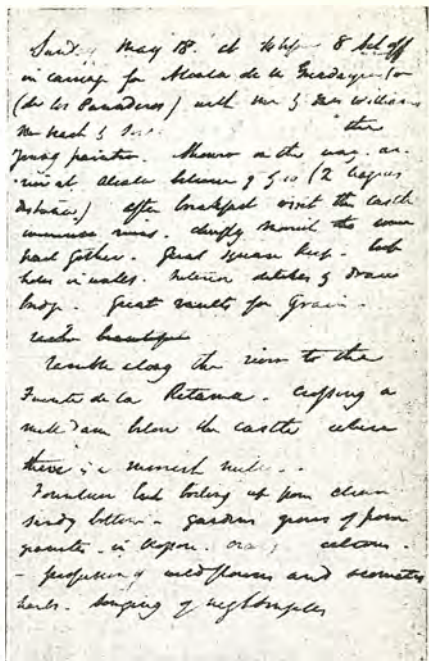 Sunday May 18. at half past 8 set off
in carriage for Alcala de la Guadayra (or
(de los Panaderos) with Mr & Mrs Williams
the
young painter. Shower on the way. ar-
-rive at Alcala between 9 & 10 (2 leagues
distance) after breakfast visit the castle
immense ruins. chiefly moorish the some
part Gothic. Great square keep. loop
holes in walls. interior ditches & draw
bridge. Great vaults for Grain.
ramble along the river to the
Fuente de la Retama. crossing a
mill dam below the castle where
there is a moorish mill..
Fountain boiling up from clean
sandy bottom - gardens groves of pom
granates - in blossom.
- profusion of wild flowers and aromatic
herbs. singing of nightingales